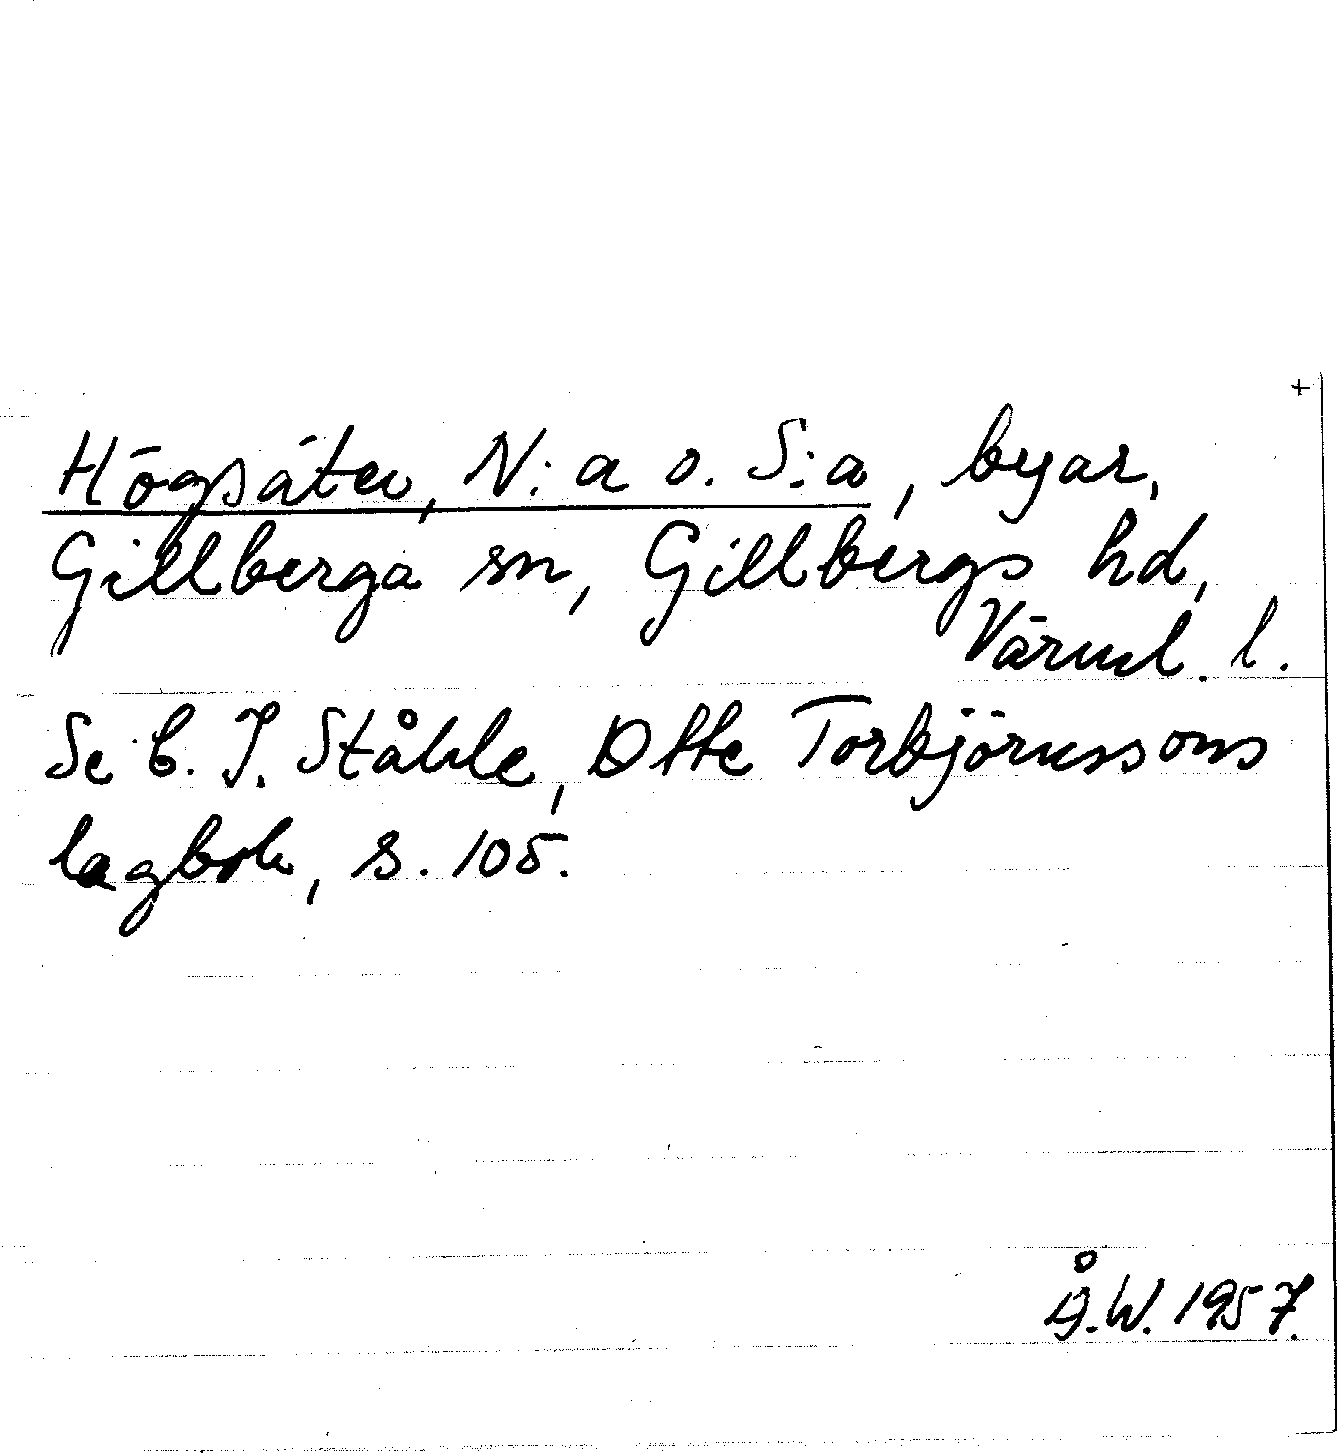 +
Högsäter, N:a o. S:a, byar,
Gillberga sn, Gillbergs hd,
Värml. l.
Se C. I. Ståhle, Otte Torbjörnssons
lagbok, s. 105.
Å.W. 1957.